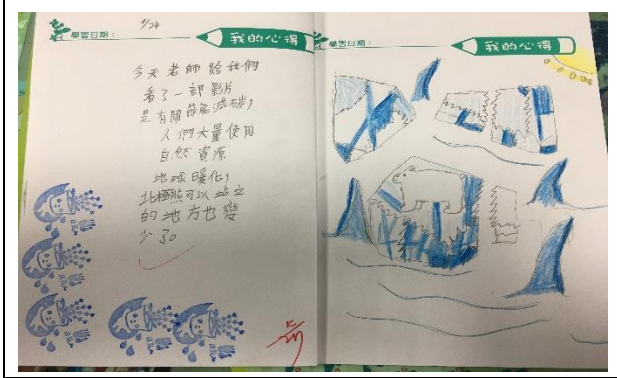 學習日期：
9/24
我的心得
今天老師給我們
看了一部影片
是有關節能減碳，
人們大量使用
自然資源
地球暖化，
北極熊可以站立
的地方也變
少了。
學習日期：
我的心得